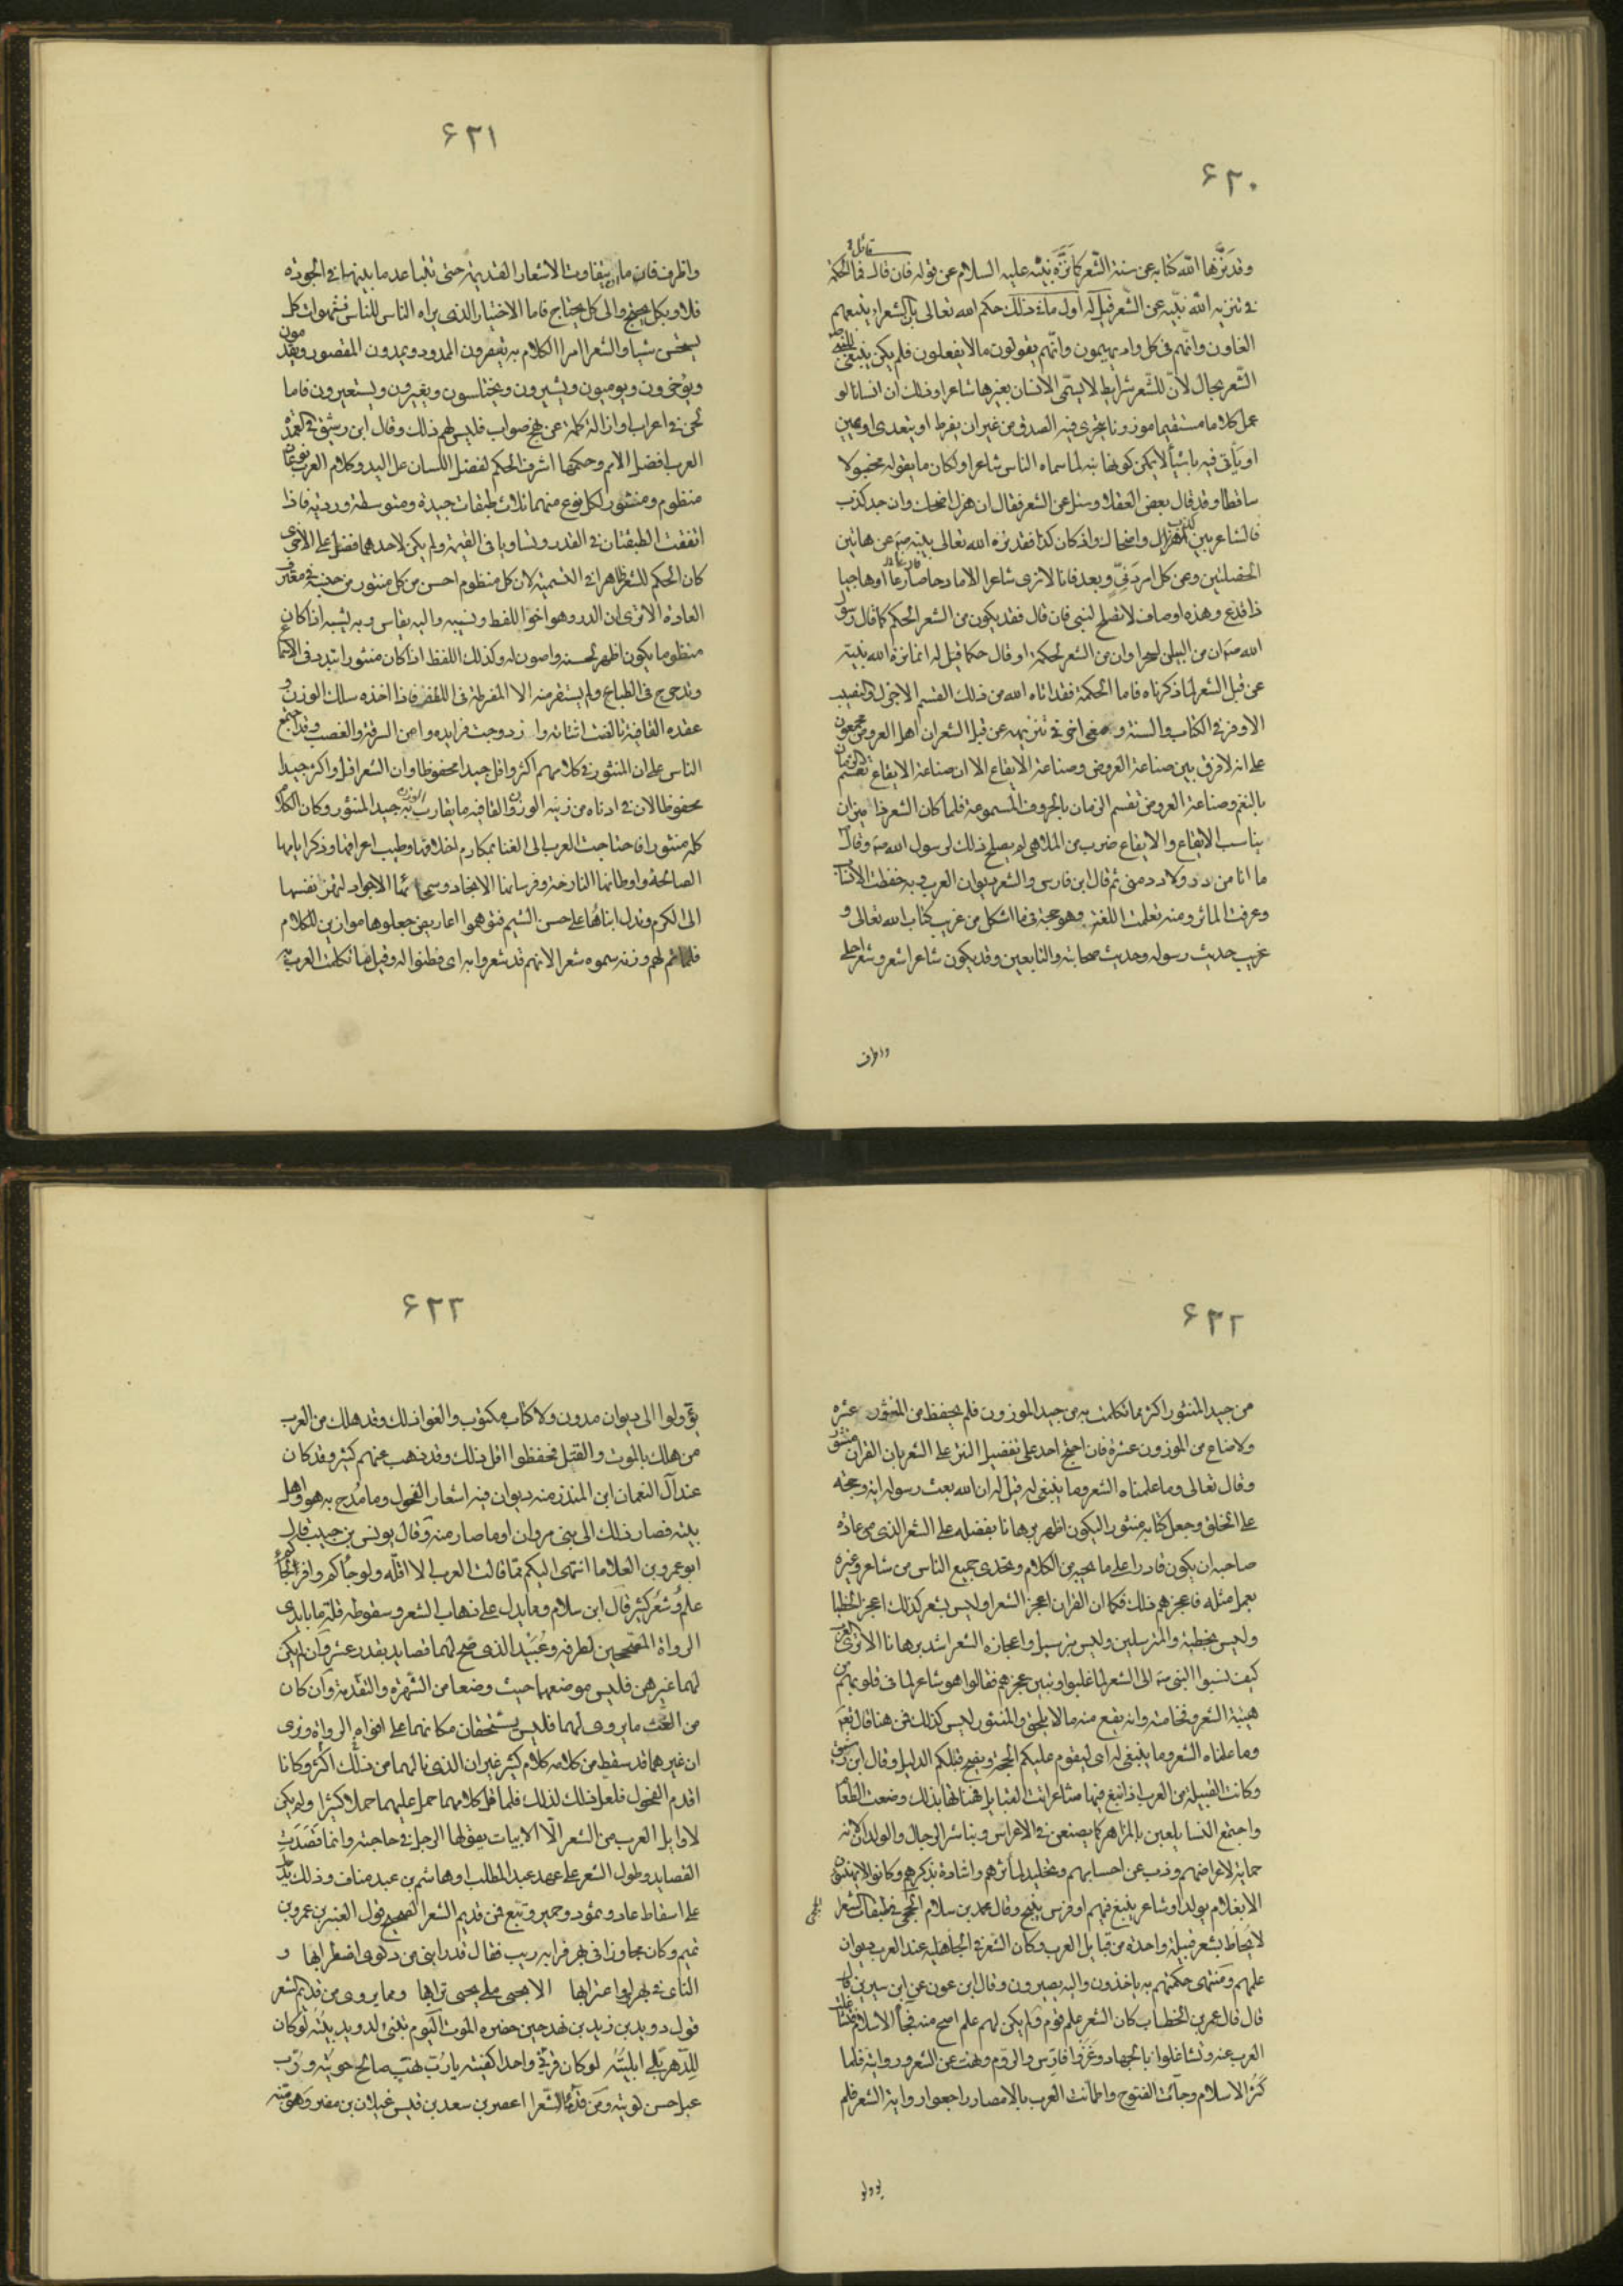 ۶۲۰
قائل
وقد نزّه الله كتابه عن سنة الشعر كما نزّه نبيّه عليه السلام عن قوله فان قال فما الحكمة
في تنزيه الله نبيّه عن الشعر قيل له اول ما في ذلك حكم الله تعالى بان الشعراء يتبعهم
الغاون وانهم في كل واد يهيمون وانهم يقولون مالا يفعلون فلم يكن ينبغي للنبي
الشعر بحال لان للشعر شرايط لا يسمى الانسان بغيرها شاعرا وذلك ان انسانا لو
عمل كلاما مستقيما موزونا يتحرى فيه الصدق من غير ان يفرط او يتعدى او يمين
او يأتى فيه باشيأ لا يمكن كونها بتة لما سماه الناس شاعرا ولكان ما يقوله مخسولا
ساقطا وقد قال بعض العقلاء وسئل عن الشعر فقال ان هزل اضحك وان جد كذب
فالشاعر بين كذب واضحاك واذ كان كذا فقد نزه الله تعالى نبيه صـ عن هاتين
الخصلتين وعن كل امر دَنِيّ وبعد فانا لا نرى شاعرا الا مادحا ضارعا او هاجيا
ذا قذع وهذه اوصاف لا تصلح لنبي فان قال فقد يكون من الشعر الحكم كما قال رسول
الله صـ ان من البيان لسحرا وان من الشعر لحكمة او قال حكما قيل له انما نزه الله نبيه
عن قيل الشعر لما ذكرناه فاما الحكمة فقد اتاه الله من ذلك القسم الاجزل والنصيب
الاوفر في الكتاب والسنة ومعنى اخر في تنزيهه عن قيل الشعر ان اهل العروض مجمعون
على انه لا فرق بين صناعة العروض وصناعة الايقاع الا ان صناعة الايقاع تقسم الزمان
بالنغم وصناعة العروض تقسم الزمان بالحروف المسموعة فلما كان الشعر ذا ميزان
يناسب الايقاع والايقاع ضرب من الملاهى لم يصلح ذلك لرسول الله صـ وقال
ما انا من دد ولا دد منى ثم قال ابن فارس والشعر ديوان العرب وبه حفظت الانساب
وعرفت المآثر ومنه تعلمت اللغة وهو حجة فيما اشكل من غريب كتاب الله تعالى و
غريب حديث رسوله وحديث صحابته والتابعين وقد يكون شاعر اشعر وشعر احلى
واظرف
۶۲۱
واظرف فاما ان يتفاوت الاشعار القديمة حتى يتباعد ما بينها في الجودة
فلا وبكل يحتج والى كل يحتاج فاما الاختيار الذى يراه الناس للناس فشهوات كل
يستحسن شيا والشعرا امرا الكلام به يقصرون الممدود ويمدون المقصور ويقدمون
ويؤخرون ويومون ويشيرون ويختلسون ويعيرون ويستعيرون فاما
لحن في اعراب او ازالة كلمة عن نهج صواب فليس لهم ذلك وقال ابن رشيق في العمدة
العرب افضل الامم وحكمتها اشرف الحكم لفضل اللسان على اليد وكلام العرب نوعان
منظوم ومنثور لكل نوع منهما ثلاث طبقات جيدة ومتوسطة ورديه فاذا
اتفقت الطبقتان في القدر وتساويا في القيمة ولم يكن لاحدهما فضل على الاخرى
كان الحكم للشعر ظاهرا في التسمية لان كل منظوم احسن من كل منثور من جنسه في معترف
العادة الا ترى ان الدر وهو اخو اللفظ ونسيبه واليه يقاس وبه يشبه اذا كان
منظوما يكون اظهر لحسنه واصون له وكذلك اللفظ اذا كان منثورا تبدد في الاسماع
وتدحرج في الطباع ولم يستقر منه الا المفرطة في اللطف فاذا اخذه سلك الوزن و
عقده القافية تالفت اشتاته وازدوجت فرايده وامن السرقة والغصب وقد اجتمع
الناس على ان المنثور في كلامهم اكثر واقل جيدا محفوظا وان الشعر اقل واكثر جيدا
محفوظا لان في ادناه من زينه الوزن والقافيه ما يقارب به جيد المنثور وكان الكلام
كله منثورا فاحتاجت العرب الى الغنا بمكارم اخلاقها وطيب اعراقها وذكر ايامها
الصالحة واوطانها النازحة وفرسانها الانجاد وسمحائها الاجواد لتهز نفسها
الى الكرم وتدل ابناءها على حسن الشيم فتوهموا اعاريض جعلوها موازين للكلام
فلما تم لهم وزنه سموه شعرا لانهم قد شعروا به اى فطنوا له وقيل ما تكلمت العرب به
۶۲۲
من جيد المنثور اكثر مما تكلمت به من جيد الموزون فلم يحفظ من المنثور عشره
ولا ضاع من الموزون عشره فان احتج احد على تفضيل النثر على الشعر بان القران منثور
وقال تعالى وما علمناه الشعر وما ينبغى له قيل له ان الله بعث رسوله اية وحجة
على الخلق وجعل كتابه منثورا ليكون اظهر برهانا بفضله على الشعر الذى من عادة
صاحبه ان يكون قادرا على ما يحبه من الكلام وتحدى جميع الناس من شاعر وغيره
بعمل مثله فاعجزهم ذلك فكما ان القران اعجز الشعرا وليس بشعر كذلك اعجز الخطبا
وليس بخطبة والمترسلين وليس بترسيل واعجازه الشعرا اشد برهانا الا ترى العرب
كيف نسبوا النبى صـ الى الشعر لما غلبوا وتبين عجزهم فقالوا هو شاعر لما في قلوبهم من
هيبة الشعر وفخامته وانه يقع منه مالا يلحق والمنثور ليس كذلك فمن هنا قال تعـ
وما علمناه الشعر وما ينبغى له اى ليقوم عليكم الحجة ويصح قبلكم الدليل وقال ابن رشيق
وكانت القبيلة من العرب اذا نبغ فيها شاعر اتت القبايل فهناتها بذلك وصنعت الطعام
واجتمع النسا يلعبن بالمزاهر كما يصنعن في الاعراس ويتباشر الرجال والولدان لانه
حماية لاعراضهم وذب عن احسابهم وتخليد لمآثرهم واشادة بذكرهم وكانوا لا يهنئون
الا بغلام يولد او شاعر ينبغ فيهم او فرس ينتج وقال محمد بن سلام الجمحى في طبقات الشعرا
لا يُحاط بشعر قبيلة واحدة من قبايل العرب وكان الشعر في الجاهلية عند العرب ديوان
علمهم ومنتهى حكمتهم به ياخذون واليه يصيرون وقال ابن عون عن ابن سيرين قال
قال قال عمر بن الخطاب كان الشعر علم قوم ولم يكن لهم علم اصح منه فجآ الاسلام فتشاغلت
العرب عنه وتشاغلوا بالجهاد وغَزْوِ فارس والروم ولهت عن الشعر وروايته فلما
كثُر الاسلام وجآت الفتوح واطمأنت العرب بالامصار راجعوا رواية الشعر فلم
يوولو
۶۲۳
يؤولوا الى ديوان مدون ولا كتاب مكتوب والفوا ذلك وقد هلك من العرب
من هلك بالموت والقتل فحفظوا اقل ذلك وقد ذهب عنهم كثير وقد كان
عند آل النعمان ابن المنذر منه ديوان فيه اشعار الفحول وما مُدح به هو واهل
بيته فصار ذلك الى بنى مروان او ما صار منه وقال يونس بن حبيب قال
ابو عمرو بن العلا ما انتهى اليكم مما قالت العرب الا اقلّه ولو جآكم وافرا لجآكم
علم وشعر كثير قال ابن سلام ومما يدل على ذهاب الشعر وسقوطه قلة ما بايدى
الرواة المصححين لطرفه وعُبَيْد الذى صح لهما قصايد بقدر عشر وان لم يكن
لهما غيرهن فليس موضعهما حيث وضعا من الشهرة والتقدمة وان كان
من الغث ما يروى لهما فليس يستحقان مكانهما على افواه الرواة ونرى
ان غيرهما قد سقط من كلامه كلام كثير غير ان الذى نالهما من ذلك اكثر وكانا
اقدم الفحول فلعل ذلك لذلك فلما قل كلامهما حمل عليهما حملا كثيرا ولم يكن
لاوايل العرب من الشعر الّا الابيات يقولها الرجل في حاجته وانما قُصّدت
القصايد وطول الشعر على عهد عبد المطلب او هاشم بن عبد مناف وذلك يدل
على اسقاط عاد وثمود وحمير وتبع فمن قديم الشعر الصحيح قول العنبر بن عمرو بن
تميم وكان مجاورا في بهرا فرابه ريب فقال قد رابنى من دلوى اضطرابها و
النأى في بهرا واغترابها الا تجى ملى يجى قرابها ومما يروى من قديم الشعر
قول دويد بن زيد بن نهد حين حضره الموت اليوم يُبنى لدويد بيتُه لو كان
للدّهر بلى ابليتُه لو كان قرنى واحدا كفيته يا رُب نهب صالح حويته ورُب
عيل حسن لويته ومن قدمآ الشعرا اعصر بن سعد بن قيس عيلان بن مضر وهو منبه